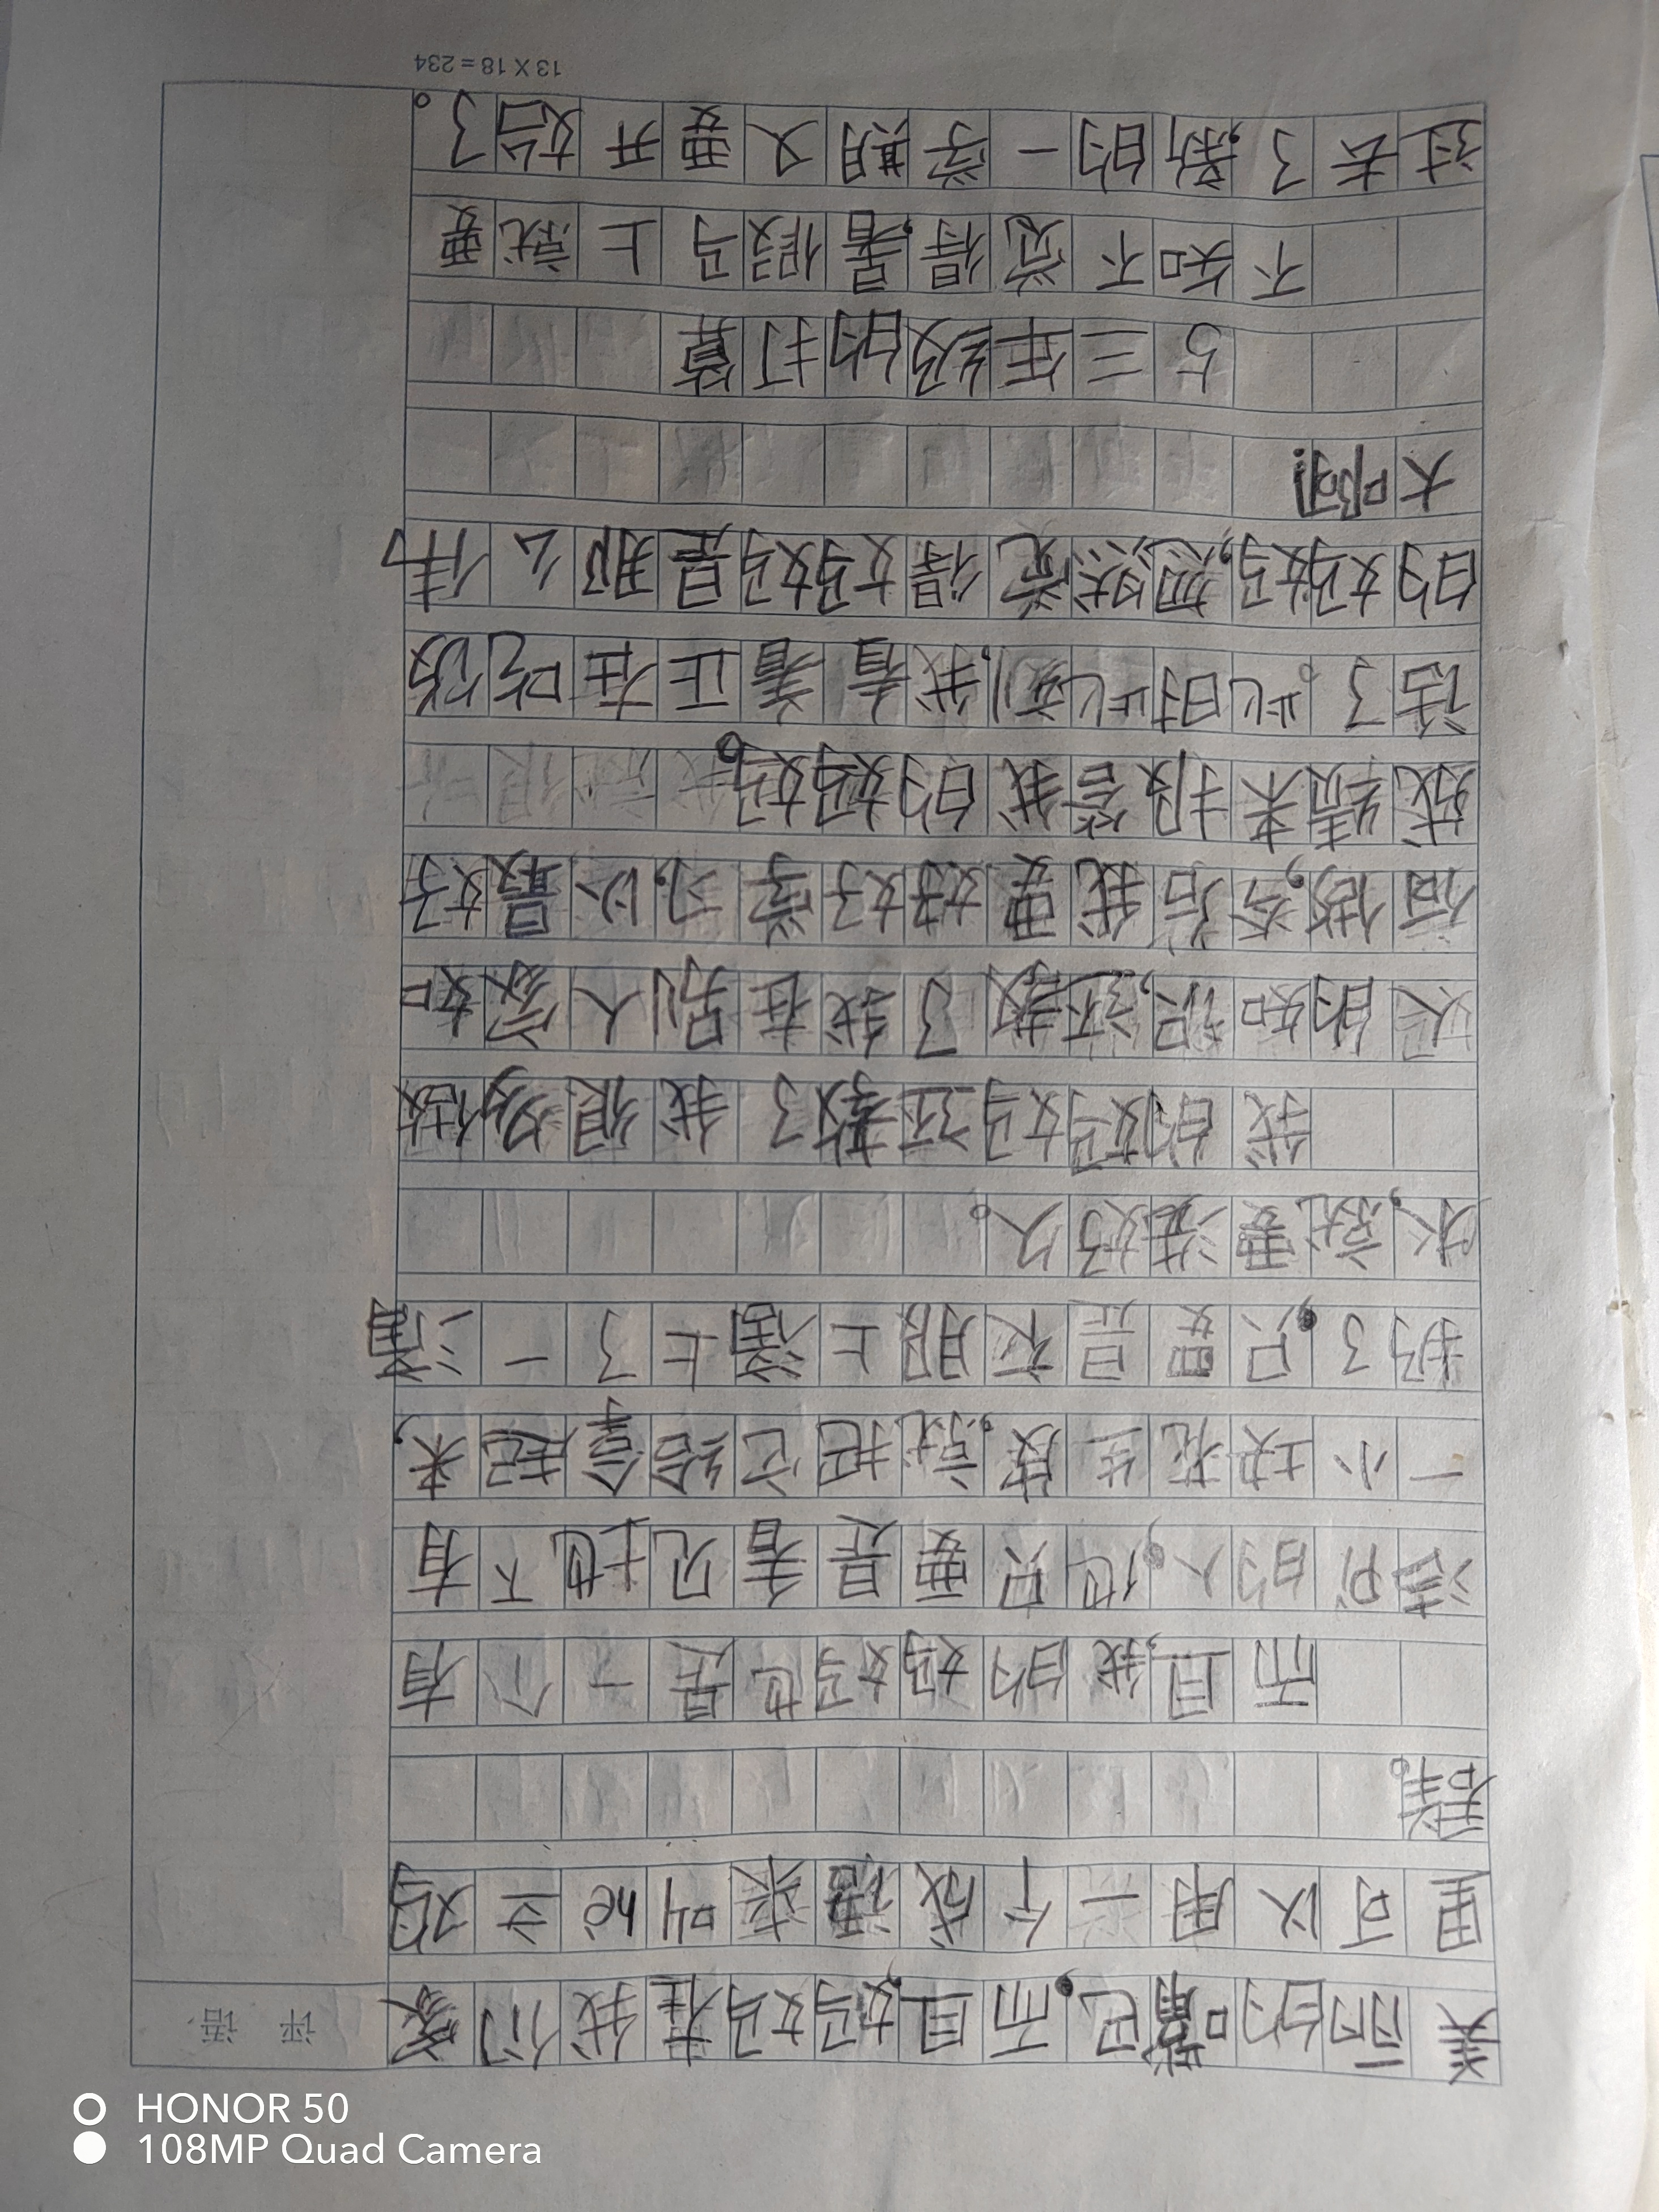 评语
美丽的嘴巴,而且,妈妈在我们家
里可以用一个成语来叫hè立鸡
群。
而且,我的妈妈也是一个有
洁的人,他只要是看见地下有
一小块花生皮,就把它给拿起来,
扔了,只要是衣服上滴上了一滴
水,就要洗好久。
我的妈妈还教了我很多做
人的知识,还教了我在别人家如
何做,今后我要好好学习,以最好
成绩来报答我的妈妈。
话了。此时此刻,我看着正在吃饭
的妈妈,忽然觉得妈妈是那么伟
大啊!
5 三年级的打算
不知不觉得,暑假马上就要
过去了,新的一学期又要开始了。
13 X 18 = 234
HONOR 50
108MP Quad Camera